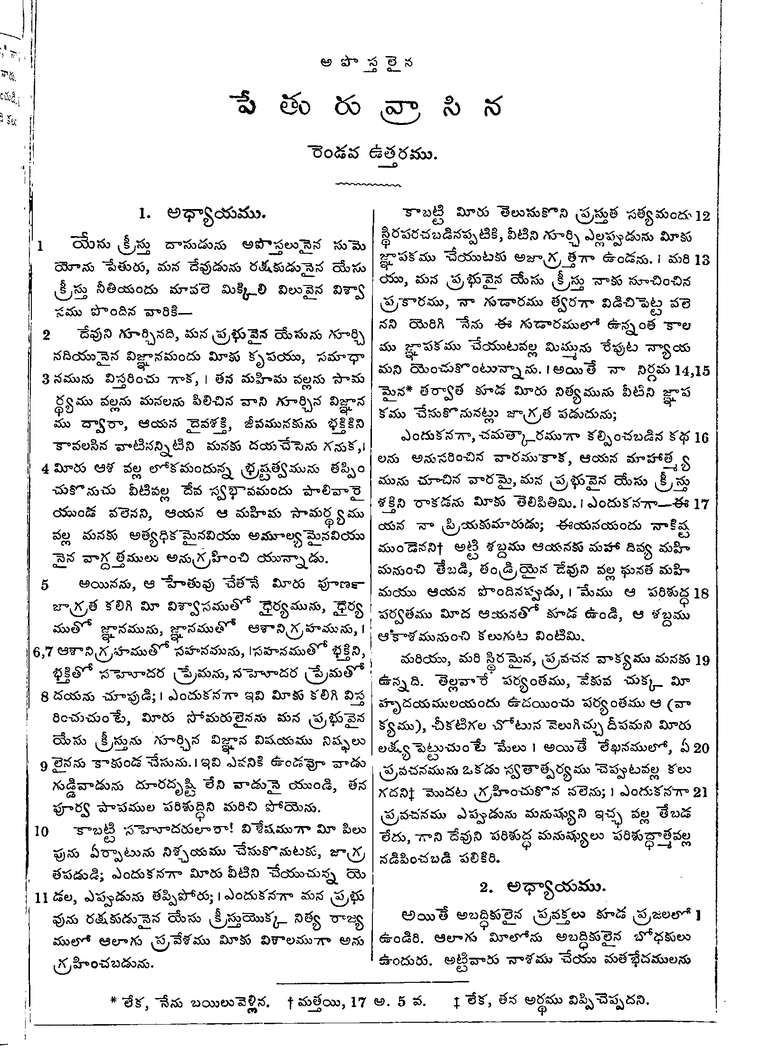 అపొస్తలైన
పేతురువ్రాసిన
రెండవ ఉత్తరము.
1. అధ్యాయము.
1 యేసు క్రీస్తు దాసుడును అపొస్తలుడునైన సుమె
యోను పేతురు, మన దేవుడును రక్షకుడునైన యేసు
క్రీస్తు నీతియందు మావలె మిక్కిలి విలువైన విశ్వా
సము పొందిన వారికి—
2 దేవుని గూర్చినది, మన ప్రభువైన యేసును గూర్చి
నదియునైన విజ్ఞానమందు మీకు కృపయు, సమాధా
3 నమును విస్తరించు గాక, । తన మహిమ వల్లను సామ
ర్థ్యము వల్లను మనలను పిలిచిన వాని గూర్చిన విజ్ఞాన
ము ద్వారా, ఆయన దైవశక్తి, జీవమునకును భక్తికిని
కావలసిన వాటినన్నిటిని మనకు దయచేసెను గనుక,।
4 మీరు ఆశ వల్ల లోకమందున్న భ్రష్టత్వమును తప్పిం
చుకొనుచు వీటివల్ల దేవ స్వభావమందు పాలివారై
యుండ వలెనని, ఆయన ఆ మహిమ సామర్థ్యము
వల్ల మనకు అత్యధికమైనవియు అమూల్యమైనవియు
నైన వాగ్దత్తములు అనుగ్రహించి యున్నాడు.
5 అయినను, ఆ హేతువు చేతనే మీరు పూర్ణ
జాగ్రత కలిగి మీ విశ్వాసముతో ధైర్యమును, ధైర్య
ముతో జ్ఞానమును, జ్ఞానముతో ఆశానిగ్రహమును,।
6,7 ఆశానిగ్రహముతో సహనమును, ।సహనముతో భక్తిని,
భక్తితో సహోదర ప్రేమను, సహోదర ప్రేమతో
8 దయను చూపుడి; । ఎందుకనగా ఇవి మీకు కలిగి విస్త
రించుచుంటే, మీరు సోమరులైనను మన ప్రభువైన
యేసు క్రీస్తును గూర్చిన విజ్ఞాన విషయము నిష్ఫలు
9 లైనను కాకుండ చేసును. ।ఇవి ఎవనికి ఉండవో వాడు
గుడ్డివాడును దూరదృష్టి లేని వాడునై యుండి, తన
పూర్వ పాపముల పరిశుద్ధిని మరిచి పోయెను.
10 కాబట్టి సహోదరులారా! విశేషముగా మీ పిలు
పును ఏర్పాటును నిశ్చయము చేసుకొనుటకు, జాగ్ర
తపడుడి; ఎందుకనగా మీరు వీటిని చేయుచున్న యె
11 డల, ఎప్పుడును తప్పిపోరు; । ఎందుకనగా మన ప్రభు
వును రక్షకుడునైన యేసు క్రీస్తుయొక్క నిత్య రాజ్య
ములో ఆలాగు ప్రవేశము మీకు విశాలముగా అను
గ్రహించబడును.
కాబట్టి మీరు తెలుసుకొని ప్రస్తుత సత్యమందు 12
స్థిరపరచబడినప్పటికి, వీటిని గూర్చి ఎల్లప్పుడును మీకు
జ్ఞాపకము చేయుటకు అజాగ్రత్తగా ఉండను. । మరి 13
యు, మన ప్రభువైన యేసు క్రీస్తు నాకు సూచించిన
ప్రకారము, నా గుడారము త్వరగా విడిచిపెట్ట వలె
నని యెరిగి నేను ఈ గుడారములో ఉన్నంత కాల
ము జ్ఞాపకము చేయుటవల్ల మిమ్మును రేపుట న్యాయ
మని యెంచుకొంటున్నాను. ।అయితే నా నిర్గమ 14,15
మైన* తర్వాత కూడ మీరు నిత్యమును వీటిని జ్ఞాప
కము చేసుకొనునట్లు జాగ్రత పడుదును;
ఎందుకనగా, చమత్కారముగా కల్పించబడిన కథ 16
లను అనుసరించిన వారముకాక, ఆయన మాహాత్మ్య
మును చూచిన వారమై, మన ప్రభువైన యేసు క్రీస్తు
శక్తిని రాకడను మీకు తెలిపితిమి. । ఎందుకనగా—ఈ 17
యన నా ప్రియకుమారుడు; ఈయనయందు నాకిష్ట
ముండెనని† అట్టి శబ్దము ఆయనకు మహా దివ్య మహి
మనుంచి తేబడి, తండ్రియైన దేవుని వల్ల ఘనత మహి
మయు ఆయన పొందినప్పుడు, । మేము ఆ పరిశుద్ధ 18
పర్వతము మీద ఆయనతో కూడ ఉండి, ఆ శబ్దము
ఆకాశమునుంచి కలుగుట వింటిమి.
మరియు, మరి స్థిరమైన, ప్రవచన వాక్యము మనకు 19
ఉన్నది. తెల్లవారే పర్యంతము, వేకువ చుక్క మీ
హృదయములయందు ఉదయించు పర్యంతము ఆ (వా
క్యము), చీకటిగల చోటున వెలుగిచ్చు దీపమని మీరు
లక్ష్యపెట్టుచుంటే మేలు । అయితే లేఖనములో, ఏ 20
ప్రవచనమును ఒకడు స్వతాత్పర్యము చెప్పుటవల్ల కలు
గదని‡ మొదట గ్రహించుకొన వలెను; । ఎందుకనగా 21
ప్రవచనము ఎప్పుడును మనుష్యుని ఇచ్ఛ వల్ల తేబడ
లేదు, గాని దేవుని పరిశుద్ధ మనుష్యులు పరిశుద్ధాత్మవల్ల
నడిపించబడి పలికిరి.
2. అధ్యాయము.
అయితే అబద్ధికులైన ప్రవక్తలు కూడ ప్రజలలో 1
ఉండిరి. ఆలాగు మీలోను అబద్ధికులైన బోధకులు
ఉందురు. అట్టివారు నాశము చేయు మతభేదములను
* లేక, నేను బయిలువెళ్లిన. † మత్తయి, 17 అ. 5 వ. ‡ లేక, తన అర్థము విప్పిచెప్పదని.